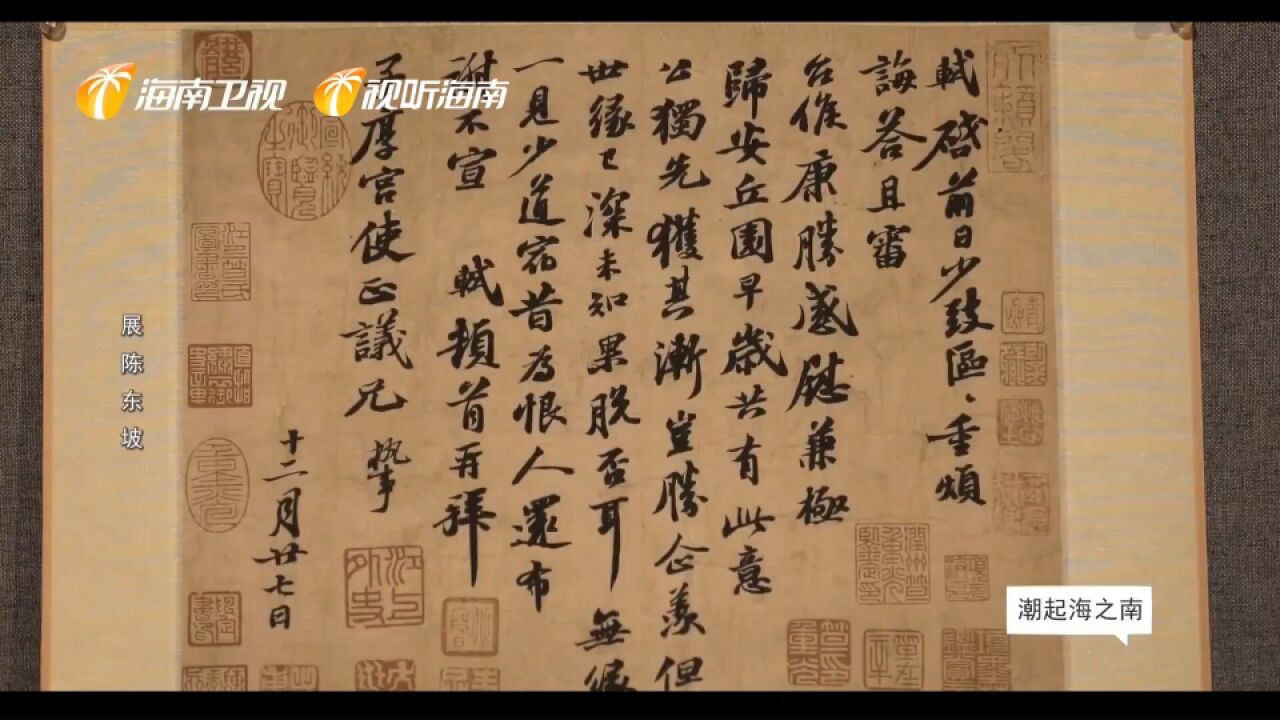 海南卫视 视听海南
軾啓前日少致區、重煩
誨荅且審
台候康勝感慰兼極
歸安丘園早歲共有此意
公獨先獲其漸豈勝企羨但
世緣已深未知果脫否耳無緣
一見少道宿昔為恨人還布
謝不宣 軾頓首再拜
子厚宮使正議兄執事
十二月廿七日
展陈东坡
潮起海之南